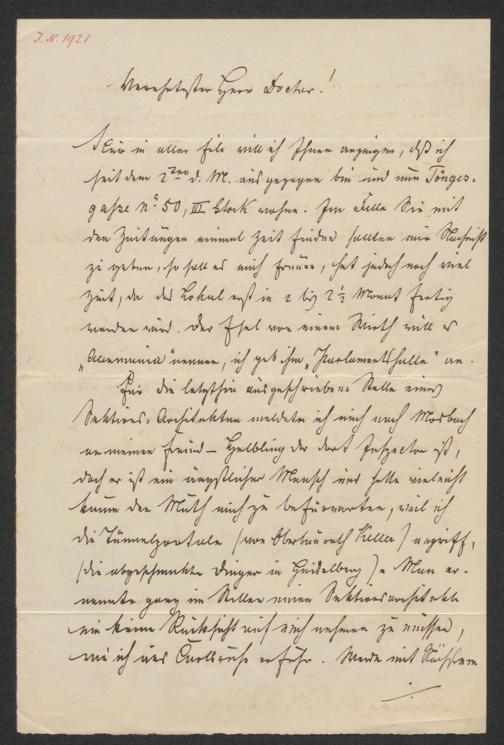 J. N. 1921
Verehrtester Herr Doctor!
Nur in aller Eile will ich Ihnen anzeigen, daß ich
seit dem 2ten d. M. ausgezogen bin und nun Tönges-
gaße No 50, III Stock wohne. Im Falle Sie mit
den Zeitungen einmal Zeit finden sollten mir Nachricht
zu geben, so soll es mich freuen, hat jedoch noch viel
Zeit, da das Lokal erst in 2 bis 2½ Monat fertig
werden wird. Der Esel von einem Wirth will es
"Alemannia" nennen, ich geb ihm "Parlamentshalle" an.
Für die letzthin ausgeschriebene Stelle eines
Sektions-Architekten meldete ich mich nach Mosbach
an meinen Freund – Helbling der dort Inspector ist,
doch er ist ein ängstlicher Mensch und hatte vielleicht
kaum den Muth mich zu befürworten, weil ich
die Tunnelportale (von Oberbaurath Keller) angriff,
(die abgeschmackte Dinger in Heidelberg). Man er-
nannte ganz im Stillen einen Sektionsarchitekten
um keine Rücksicht auf mich nehmen zu müssen,
wie ich aus Carlsruhe erfuhr. Werde mit Nächstem